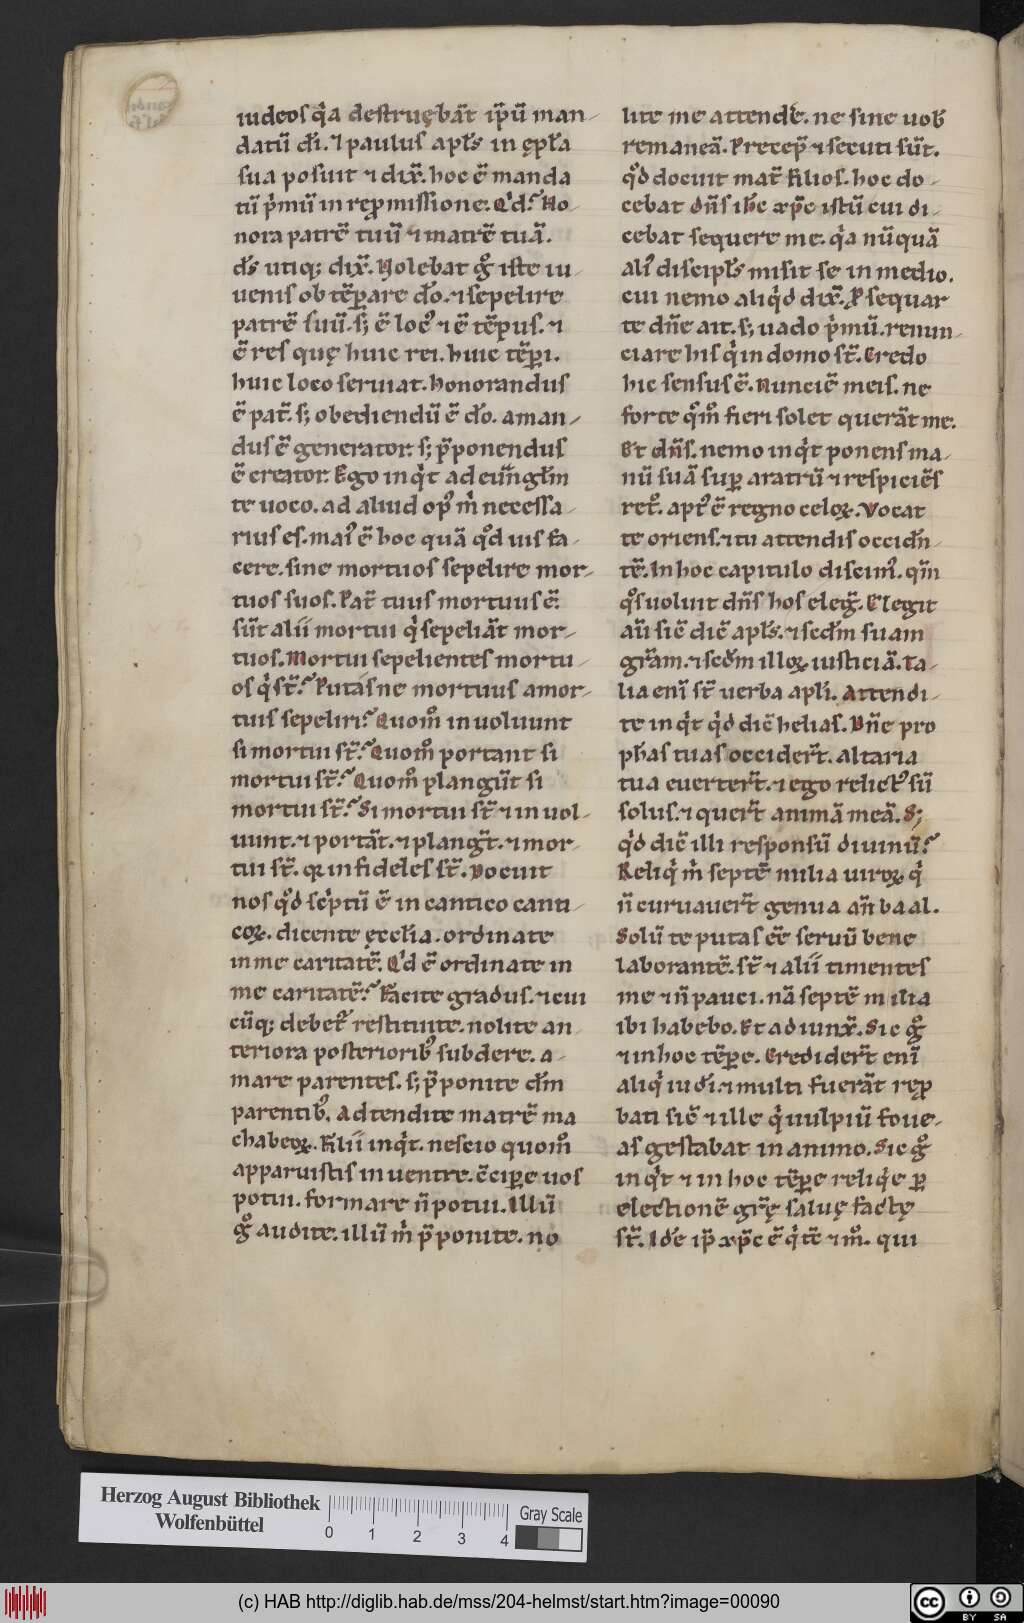 iudeos q̓a destruębāt ip̄ū man-
datū d̄i. ⁊ paulus apl̄s in ępl̄a
sua posuit ⁊ dix̄. hoc ē manda
tū p̓mū in reꝓmissione. Q̓d? Ho-
nora patrē tuū ⁊ matrē tuā.
d̄s utiq; dix̄. Nolebat g̊ iste iu-
uenis obtēꝑare d̄o. ⁊ sepelire
patrē suū. s; ē loc᾽ ⁊ ē tēpus. ⁊
ē res quę huic rei. huic tēꝑi.
huic loco seruiat. honorandus
ē pat̄. s; obediendū ē d̄o. aman-
dus ē generator. s; p̄ponendus
ē creator. Ego inq̓t ad eūngl̄m
te uoco. ad aliud op᾽ m̓ necessa-
rius es. mai᾽ ē hoc quā q̊d uis fa-
cere. sine mortuos sepelire mor-
tuos suos. Pat̄ tuus mortuus ē.
sūt alii mortui q̓ sepeliāt mor-
tuos. Mortui sepelientes mortu-
os q̓ st̄? Putas ne mortuus amor-
tuis sepeliri? Quom̊ inuoluunt
si mortui st̄? Quom̊ portant si
mortui st̄? Quom̊ plangūt si
mortui st̄? Si mortui st̄ ⁊ inuol-
uunt. ⁊ portāt. ⁊ plangt̄. ⁊ mor-
tui st̄. qꝛ infideles st̄. Docuit
nos q̊d sc̓ptū ē in cantico canti-
coꝝ. dicente ęccl̄ia. ordinate
in me caritatē. Q̓d ē ordinate in
me caritatē? Facite gradus. ⁊ cui
cūq; debet᾽ restituite. nolite an-
teriora posteriorib᾽ subdere. a-
mare parentes. s; p̄ponite d̄m
parentib᾽. Adtendite matrē ma
chabeoꝝ. Filii inq̓t. nescio quom̊
apparuistis in uentre. c̄ciꝑe uos
potui. formare n̄ potui. Illū
g̊ audite. illū m̓ p̄ponite. no
lite me attend̓e. ne sine uob̄
remaneā. Precep̄ ⁊ secuti sūt.
q̊d docuit mat̄ filios. hoc do-
cebat dn̄s ih̄c xp̄c istū cui di-
cebat sequere me. q̓a nūquā
ali᾽ discipl̄s misit se in medio.
cui nemo aliq̓d dix̄. ꝑsequar
te dn̄e ait. s; uado p̓mū. renun-
ciare his q̓ in domo st̄. Credo
hic sensus ē. Nunciē meis. ne
forte q̊m̊ fieri solet querāt me.
Et dn̄s. nemo inq̓t ponens ma-
nū suā suꝑ aratrū ⁊ respiciēs
ret᾽. apt᾽ ē regno celoꝝ. Vocat
te oriens. ⁊ tu attendis occidn̄-
tē. In hoc capitulo discim᾽. qm̄
q̊s uoluit dn̄s hos eleg̓. Elegit
aū sic̄ dic̄ apl̄s. ⁊ scd̄m suam
grām. ⁊ scd̄m illoꝝ iusticiā. Ta-
lia enī st̄ uerba apl̓i. Attendi-
te inq̓t q̓d dic̄ helias. Dn̄e pro
ph̄as tuas occider̄t. altaria
tua euerter̄t. ⁊ ego relict᾽ sū
solus. ⁊ quer̄t animā meā. S;
q̓d dic̄ illi responsū diuinū?
Reliq̓ m̓ septē milia uiroꝝ q̓
n̄ curuauer̄t genua an̄ baal.
Solū te putas ēē seruū bene
laborantē. st̄ ⁊ alii timentes
me ⁊ n̄ pauci. nā septē milia
ibi habebo. Et adiunx̄. Sic g̊
⁊ in hoc tēꝑe. Credider̄t enī
aliq̓ iud̄i. ⁊ multi fuerāt reꝓ
bati sic̄ ⁊ ille q̓ uulpiū foue-
as gestabat in animo. Sic g̊
inq̓t ⁊ in hoc tēꝑe reliq̓e ꝑ
electionē gr̄ę saluę factę
st̄. Ide ip̄ xp̄c ē q̓ tc̄ ⁊ m̊. qui
Herzog August Bibliothek
Wolfenbüttel
0 1 2 3 4
Gray Scale
(c) HAB http://diglib.hab.de/mss/204-helmst/start.htm?image=00090
cc BY SA